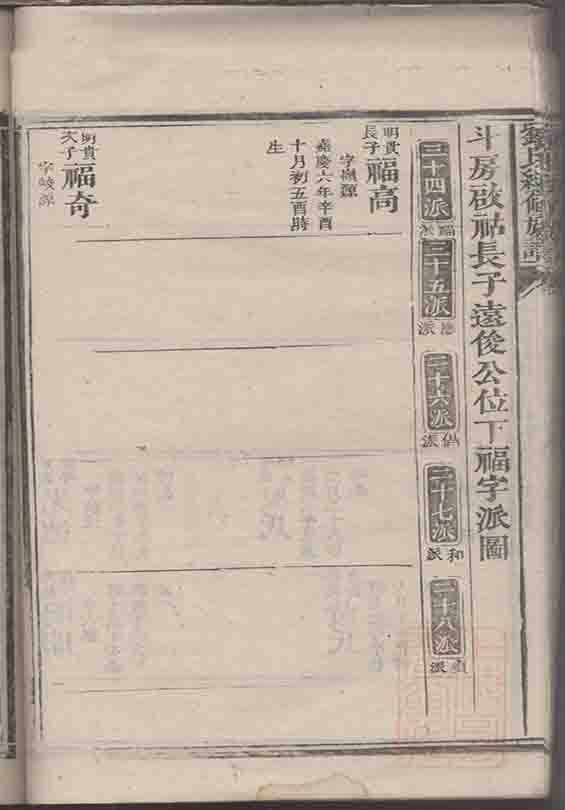 斗房啟祜長子遠俊公位下福字派圖
三十四派
福派
三十五派
應派
三十六派
三十七派
和派
三十八派
明貴長子
福高
字嶽源
嘉慶六年辛酉
十月初五酉時
生
明貴次子
福奇
字峻源